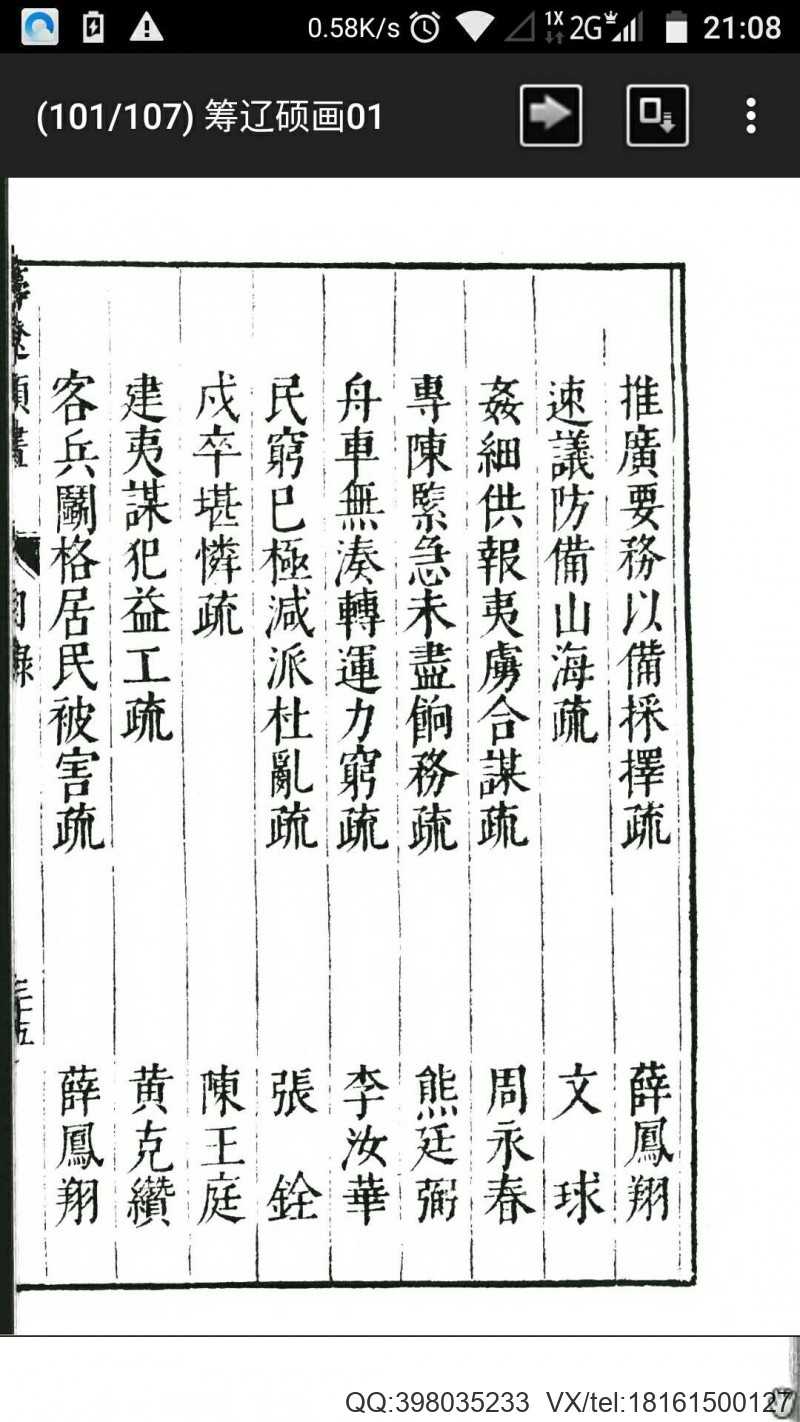 0.58K/s 1X 2G 21:08
(101/107) 筹辽硕画01
推廣要務以備採擇疏 薛鳳翔
速議防備山海疏 文球
姦細供報夷虜合謀疏 周永春
專陳緊急未盡餉務疏 熊廷弼
舟車無湊轉運力窮疏 李汝華
民窮已極減派杜亂疏 張銓
戍卒堪憐疏 陳王庭
建夷謀犯益工疏 黄克纘
客兵鬭格居民被害疏 薛鳳翔
QQ:398035233 VX/tel:18161500127